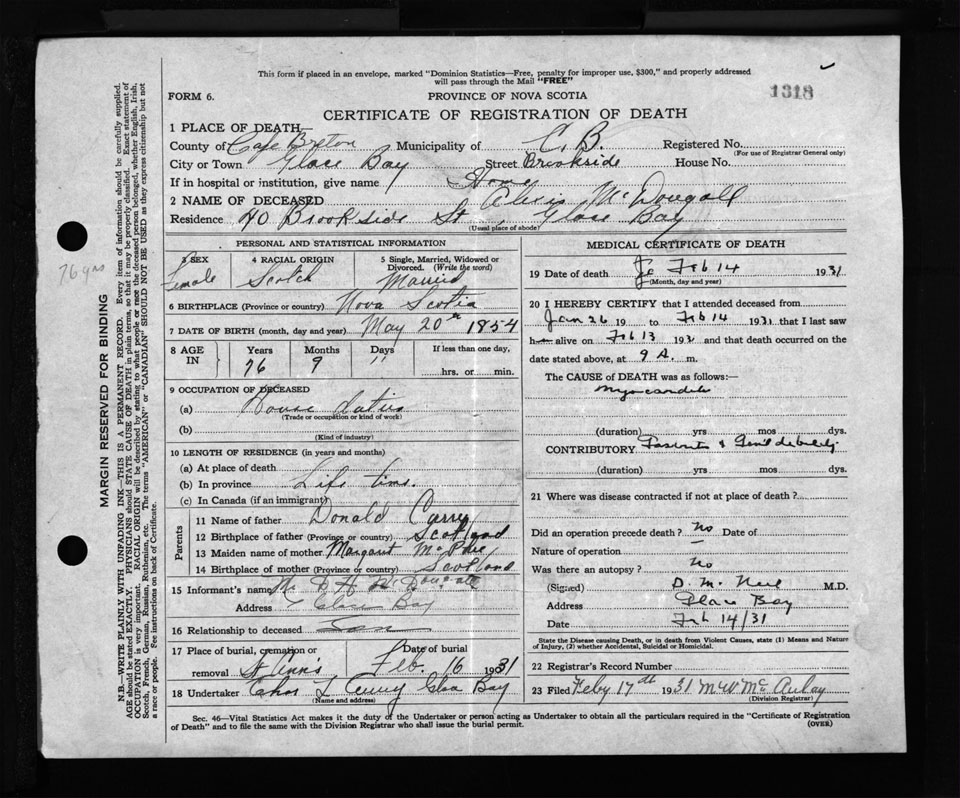 This form if placed in an envelope, marked "Dominion Statistics—Free, penalty for improper use, $300," and properly addressed
will pass through the Mail "FREE"
FORM 6. PROVINCE OF NOVA SCOTIA 1318
CERTIFICATE OF REGISTRATION OF DEATH
1 PLACE OF DEATH—
County of Cape Breton Municipality of C. B. Registered No.
(For use of Registrar General only)
City or Town Glace Bay Street Brookside House No.
If in hospital or institution, give name Home
2 NAME OF DECEASED Alexis McDougall
Residence 40 Brookside St, Glace Bay
(Usual place of abode)
PERSONAL AND STATISTICAL INFORMATION
3 SEX 4 RACIAL ORIGIN 5 Single, Married, Widowed or
Divorced. (Write the word)
Female Scotch Married
6 BIRTHPLACE (Province or country) Nova Scotia
7 DATE OF BIRTH (month, day and year) May 20th 1854
8 AGE IN Years Months Days If less than one day,
76 9 hrs. or min.
9 OCCUPATION OF DECEASED
(a) House duties
(Trade or occupation or kind of work)
(b)
(Kind of industry)
10 LENGTH OF RESIDENCE (in years and months)
(a) At place of death
(b) In province Life time.
(c) In Canada (if an immigrant)
Parents
11 Name of father Donald Curry
12 Birthplace of father (Province or country) Scotland
13 Maiden name of mother Margaret McPhee
14 Birthplace of mother (Province or country) Scotland
15 Informant's name Mr D H McDougall
Address Glace Bay
16 Relationship to deceased Son
17 Place of burial, cremation or removal St Ann's Date of burial Feb. 16 1931
18 Undertaker Chas L Curry Glace Bay
(Name and address)
MEDICAL CERTIFICATE OF DEATH
19 Date of death Feb 14 1931
(Month, day and year)
20 I HEREBY CERTIFY that I attended deceased from
Jan 26 19 to Feb 14 1931 that I last saw
h alive on Feb 13 193 and that death occurred on the
date stated above, at 9 A. m.
The CAUSE of DEATH was as follows:—
Myocarditis
(duration) yrs mos dys.
CONTRIBUTORY
(duration) yrs. mos. dys.
21 Where was disease contracted if not at place of death?
Did an operation precede death? No Date of
Nature of operation —
Was there an autopsy? No
(Signed) D. McNeil M.D.
Address Glace Bay
Date Feb 14/31
State the Disease causing Death, or in death from Violent Causes, state (1) Means and Nature
of Injury, (2) whether Accidental, Suicidal or Homicidal.
22 Registrar's Record Number
23 Filed Feby 17th 1931 M W McAulay
(Division Registrar)
Sec. 46—Vital Statistics Act makes it the duty of the Undertaker or person acting as Undertaker to obtain all the particulars required in the "Certificate of Registration
of Death" and to file the same with the Division Registrar who shall issue the burial permit. (OVER)
76 yrs
MARGIN RESERVED FOR BINDING
N.B.—WRITE PLAINLY WITH UNFADING INK—THIS IS A PERMANENT RECORD. Every item of information should be carefully supplied.
AGE should be stated EXACTLY. PHYSICIANS should STATE CAUSE OF DEATH in plain terms, so that it may be properly classified. Exact statement of
OCCUPATION is very important. RACIAL ORIGIN will be described by stating to what people or race the deceased person belonged, whether English, Irish,
Scotch, French, German, Russian, Ruthenian, etc. The terms "AMERICAN" or "CANADIAN" SHOULD NOT BE USED as they express citizenship but not
a race or people. See instructions on back of Certificate.